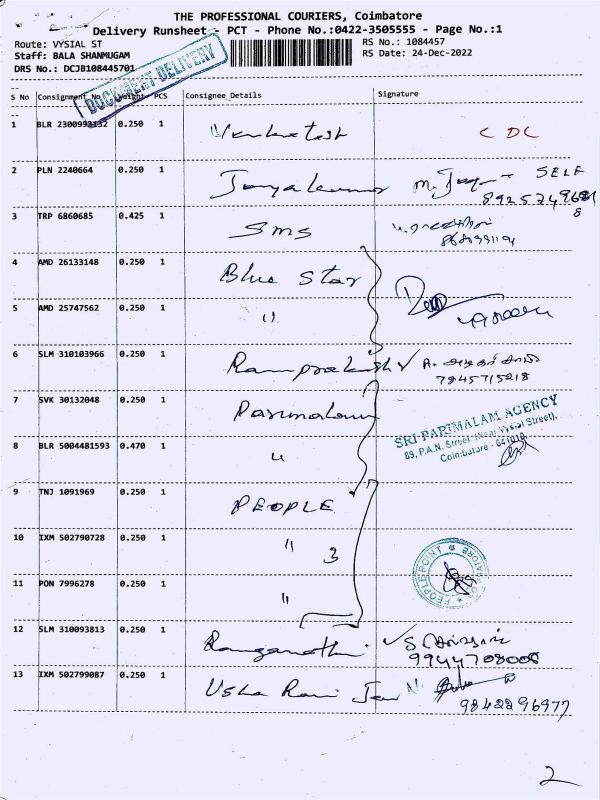 THE PROFESSIONAL COURIERS, Coimbatore
Delivery Runsheet - PCT - Phone No.:0422-3505555 - Page No.:1
Route: VYSIAL ST
RS No.: 1084457
Staff: BALA SHANMUGAM
RS Date: 24-Dec-2022
DRS No.: DCJB108445701
DOCUMENT DELIVERY
S No Consignment No Weight PCS Consignee Details Signature
1 BLR 2300992132 0.250 1 Venkatesh CDC
2 PLN 2240664 0.250 1 Jayakumar SELF
3 TRP 6860685 0.425 1 SMS
4 AMD 26133148 0.250 1 Blue Star
5 AMD 25747562 0.250 1 "
6 SLM 310103966 0.250 1 Ramprakash
7845715218
7 SVK 30132048 0.250 1 Parimalam
SRI PARIMALAM AGENCY
89, P.A.N. Street, (Near Vysial Street),
Coimbatore - 641010.
8 BLR 5004481593 0.470 1 "
9 TNJ 1091969 0.250 1 PEOPLE
10 IXM 502790728 0.250 1 " 3
PEOPLEPOINT
11 PON 7996278 0.250 1 "
12 SLM 310093813 0.250 1 Ranganathi
9944708006
13 IXM 502799087 0.250 1 Usha Rani
9842296977
2